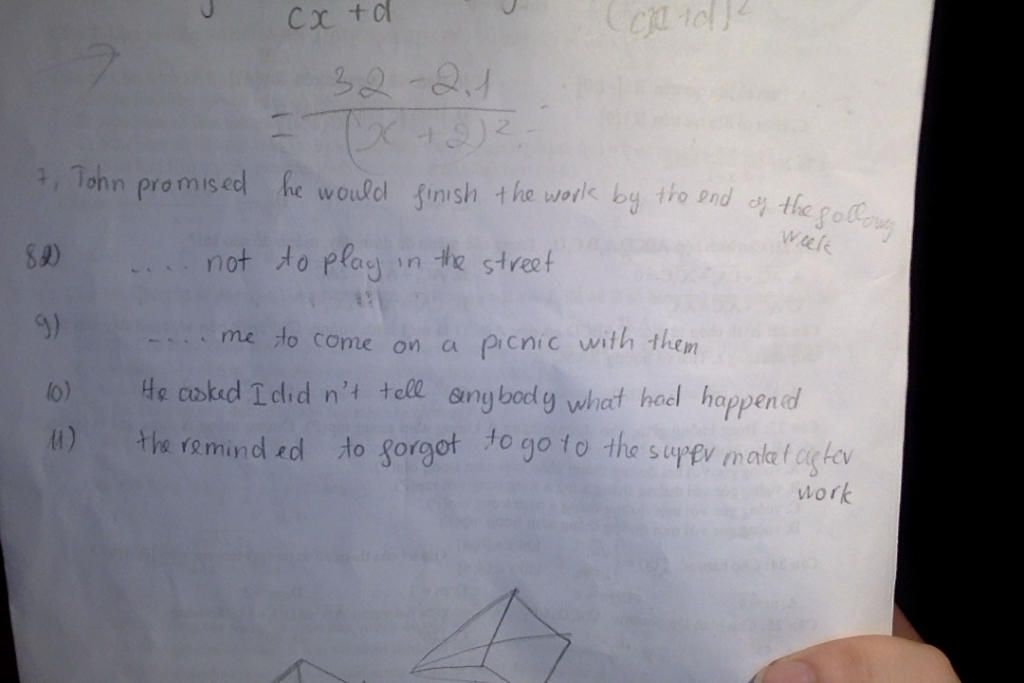 cx + d
(cx + d)²
= 32 - 2.1
(x + 2)²
7, John promised he would finish the work by tho end of the following
week
8) .... not to play in the street
9) .... me to come on a picnic with them
10) He asked I did n't tell anybody what had happened
11) the remind ed to forgot to go to the super maket after
work